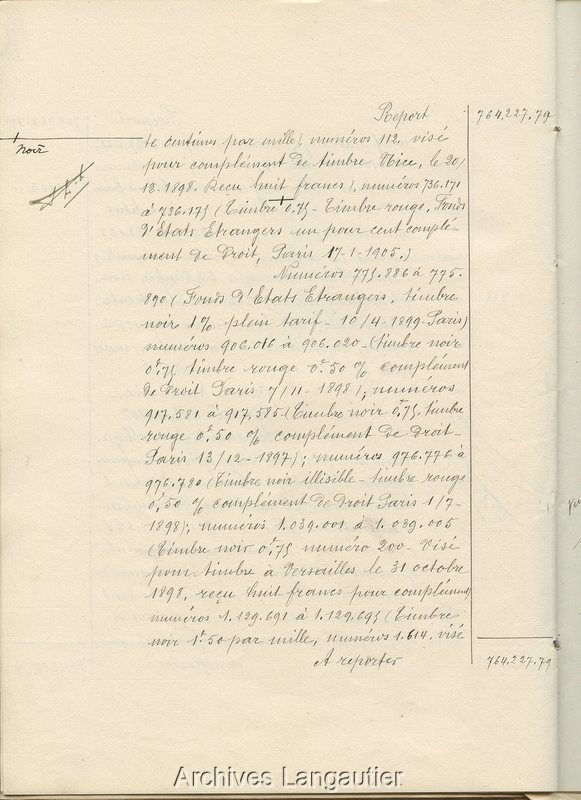 Report 764.227.79
te centimes par mille), numéros 112. visé
noir
pour complément de timbre Nice, le 20/
12-1898. Reçu huit francs), numéros 736.171
à 736.175 (Timbre 0.75 - Timbre rouge, Fonds
d'Etats Etrangers un pour cent complé-
ment de Droit, Paris 17-1-1905.)
Numéros 775.886 à 775.
890 (Fonds d'Etats Etrangers, timbre
noir 1% plein tarif - 10/4-1899-Paris)
numéros 906.016 à 906.020-(timbre noir
0f.75 timbre rouge 0f.50 % complément
de droit Paris 7/11-1898); numéros
917.581 à 917.585-(Timbre noir 0f.75. timbre
rouge 0f.50 % complément de Droit-
Paris 13/12-1897); numéros 976.776 à
976.780 (Timbre noir illisible - timbre rouge
0f.50 % complément de Droit Paris 1/7-
1898); numéros 1.039.001 à 1.039.005
(Timbre noir 0f.75 numéro 200- Visé
pour timbre à Versailles le 31 octobre
1898, reçu huit francs pour complément
numéros 1.129.691 à 1.129.695 (Timbre
noir 1f.50 par mille, numéros 1.614. visé
A reporter 764.227.79
Archives Langautier